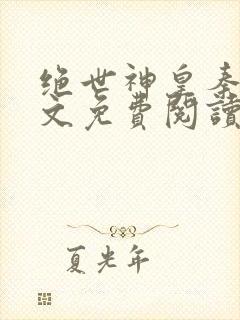 绝世神皇秦
文免費閱讀
夏光年